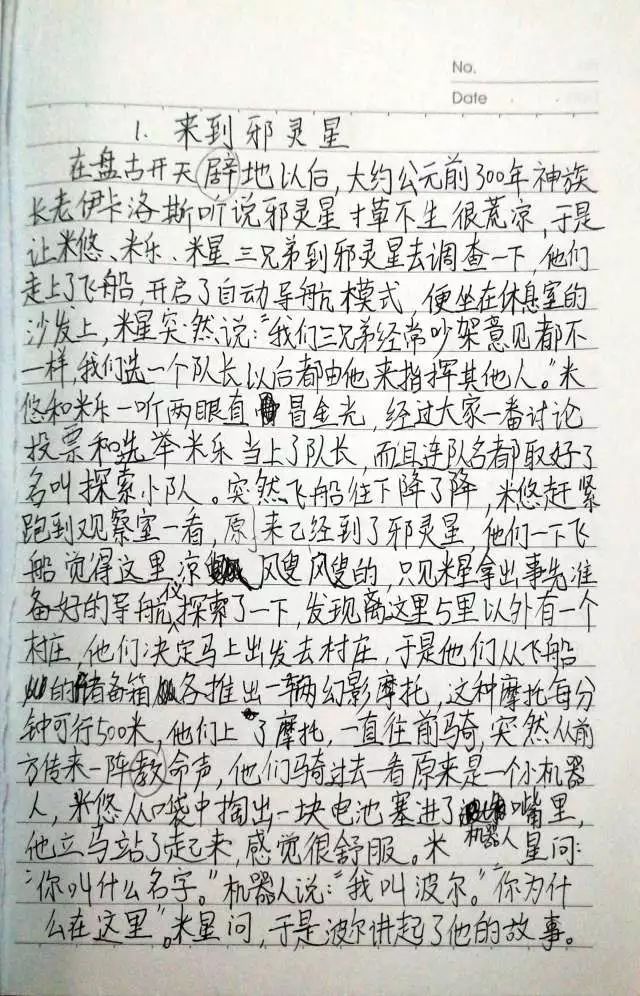 No.
Date
1. 来到邪灵星
在盘古开天辟地以后，大约公元前300年神族
长老伊卡洛斯听说邪灵星寸草不生很荒凉，于是
让米悠、米乐、米星三兄弟到邪灵星去调查一下，他们
走上了飞船，开启了自动导航模式，便坐在休息室的
沙发上，米星突然说：“我们三兄弟经常吵架意见都不
一样，我们选一个队长以后都由他来指挥其他人。”米
悠和米乐一听两眼直冒金光，经过大家一番讨论
投票和选举米乐当上了队长，而且连队名都取好了
名叫探索小队。突然飞船往下降了降，米悠赶紧
跑到观察室一看，原来已经到了邪灵星，他们一下飞
船觉得这里凉风嗖风嗖的，只见米星拿出事先准
备好的导航仪探索了一下，发现离这里5里以外有一个
村庄，他们决定马上出发去村庄，于是他们从飞船
的储备箱各推出一辆幻影摩托，这种摩托每分
钟可行500米，他们上了摩托，一直往前骑，突然从前
方传来一阵救命声，他们骑过去一看原来是一个小机器
人，米悠从口袋中掏出一块电池塞进了机器人嘴里，
他立马站了起来，感觉很舒服。米星问：
“你叫什么名字。”机器人说：“我叫波尔。”“你为什
么在这里”。米星问，于是波尔讲起了他的故事。